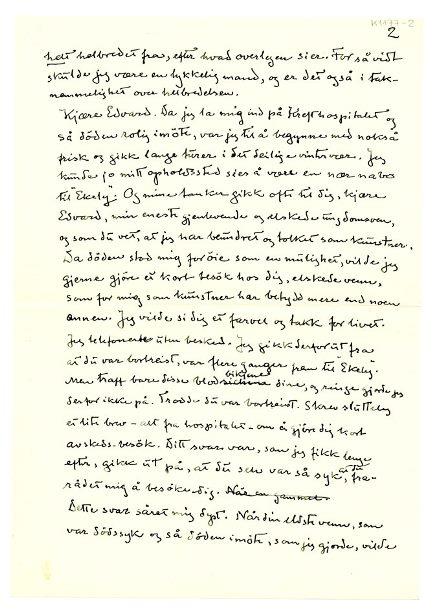 K1477-2
2
helt helbredet fra, efter hvad overlegen sier. For så vidt
skulde jeg være en lykkelig mand, og er det også i tak-
nemmelighet over helbredelsen.
Kjære Edvard. Da jeg la mig ind på hospitalet og
så döden rolig imöte, var jeg til å begynne med nokså
frisk og gikk lange turer i det deilige vintervær. Jeg
kunde jo mitt opholdssted sies å være en nær nabo
til "Ekely". Og mine tanker gikk ofte til dig, kjære
Edvard, min eneste gjenlevende og elskede ungdomsven,
og som du vet, at jeg har beundret og tolket som kunstner.
Da döden stod mig for öie som en mulighet, vilde jeg
gjerne gjöre et kort besök hos dig, elskede venn,
som for mig som kunstner har betydd mere end noen
annen. Jeg vilde si dig et farvel og takk for livet.
Jeg telefonerte uten besked. Jeg gikk derfor ut fra
at du var bortreist, var flere ganger frem til Ekely.
Men traff bare disse dine, og ringe gjorde jeg
derfor ikke på. Trodde du var bortreist. Skrev sluttelig
et lite brev – alt fra hospitalet – om å gjöre dig kort
avskeds-besök. Ditt svar var, som jeg fikk lenge
efter, gikk ut på, at du selv var så syk, at du fra-
rådet mig å besöke dig. Når en gammel
Dette svar såret mig dypt. Når din eldste venn, som
var dödssyk og så döden imöte, som jeg gjorde, vilde